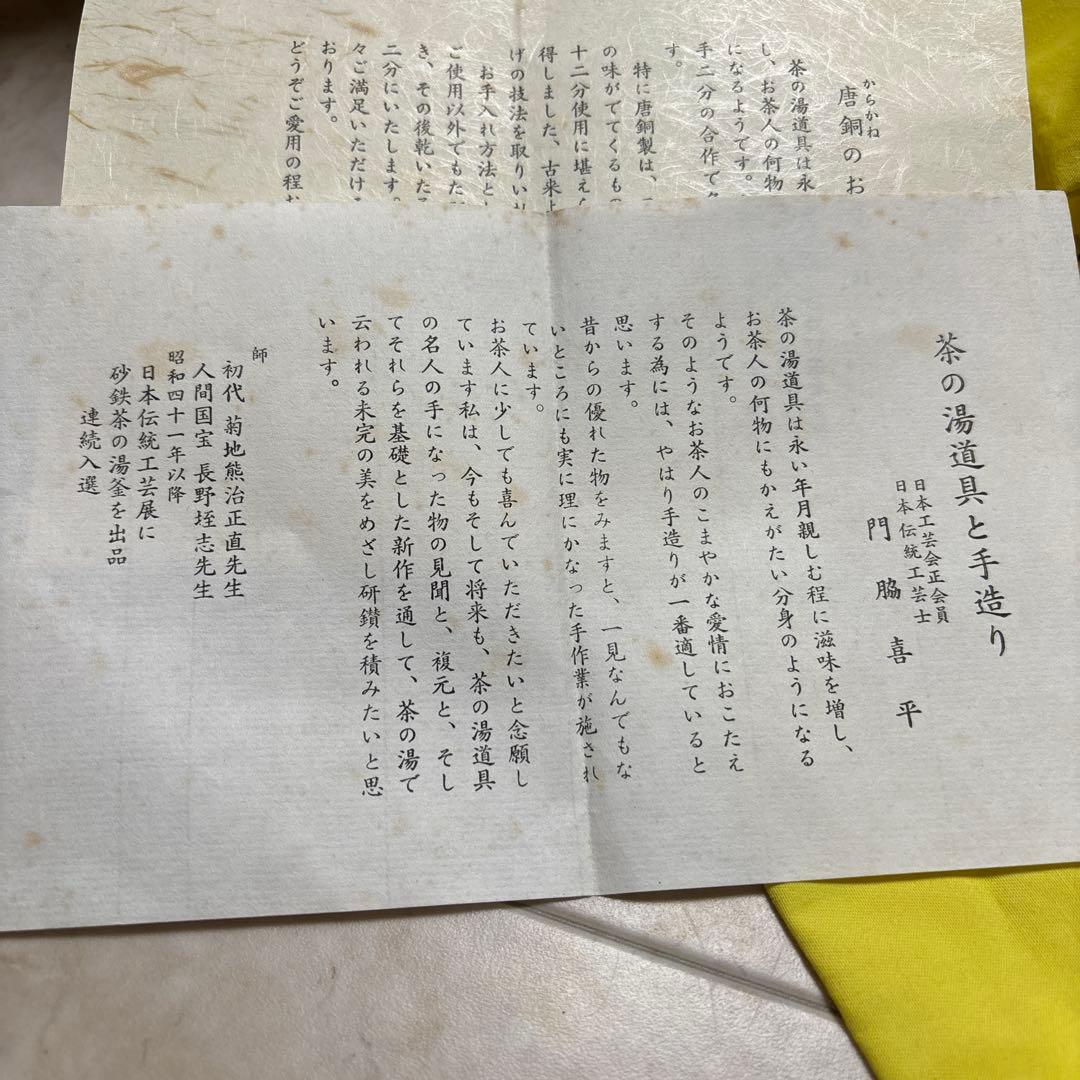 からかね
唐銅のお
茶の湯道具は永
し、お茶人の何物
になるようです。
手二分の合作で
す。
特に唐銅製は、
の味がでてくるもの
十二分使用に堪え
得しました、古来
げの技法を取りい
お手入れ方法と
ご使用以外でもた
き、その後乾いた
二分にいたします。
々ご満足いただけ
おります。
どうぞご愛用の程お
茶の湯道具と手造り
日本工芸会正会員
日本伝統工芸士
門脇喜平
茶の湯道具は永い年月親しむ程に滋味を増し、
お茶人の何物にもかえがたい分身のようになる
ようです。
そのようなお茶人のこまやかな愛情におこたえ
する為には、やはり手造りが一番適していると
思います。
昔からの優れた物をみますと、一見なんでもな
いところにも実に理にかなった手作業が施され
ています。
お茶人に少しでも喜んでいただきたいと念願し
ています私は、今もそして将来も、茶の湯道具
の名人の手になった物の見聞と、複元と、そし
てそれらを基礎とした新作を通して、茶の湯で
云われる未完の美をめざし研鑽を積みたいと思
います。
師
初代 菊地熊治正直先生
人間国宝 長野垤志先生
昭和四十一年以降
日本伝統工芸展に
砂鉄茶の湯釜を出品
連続入選